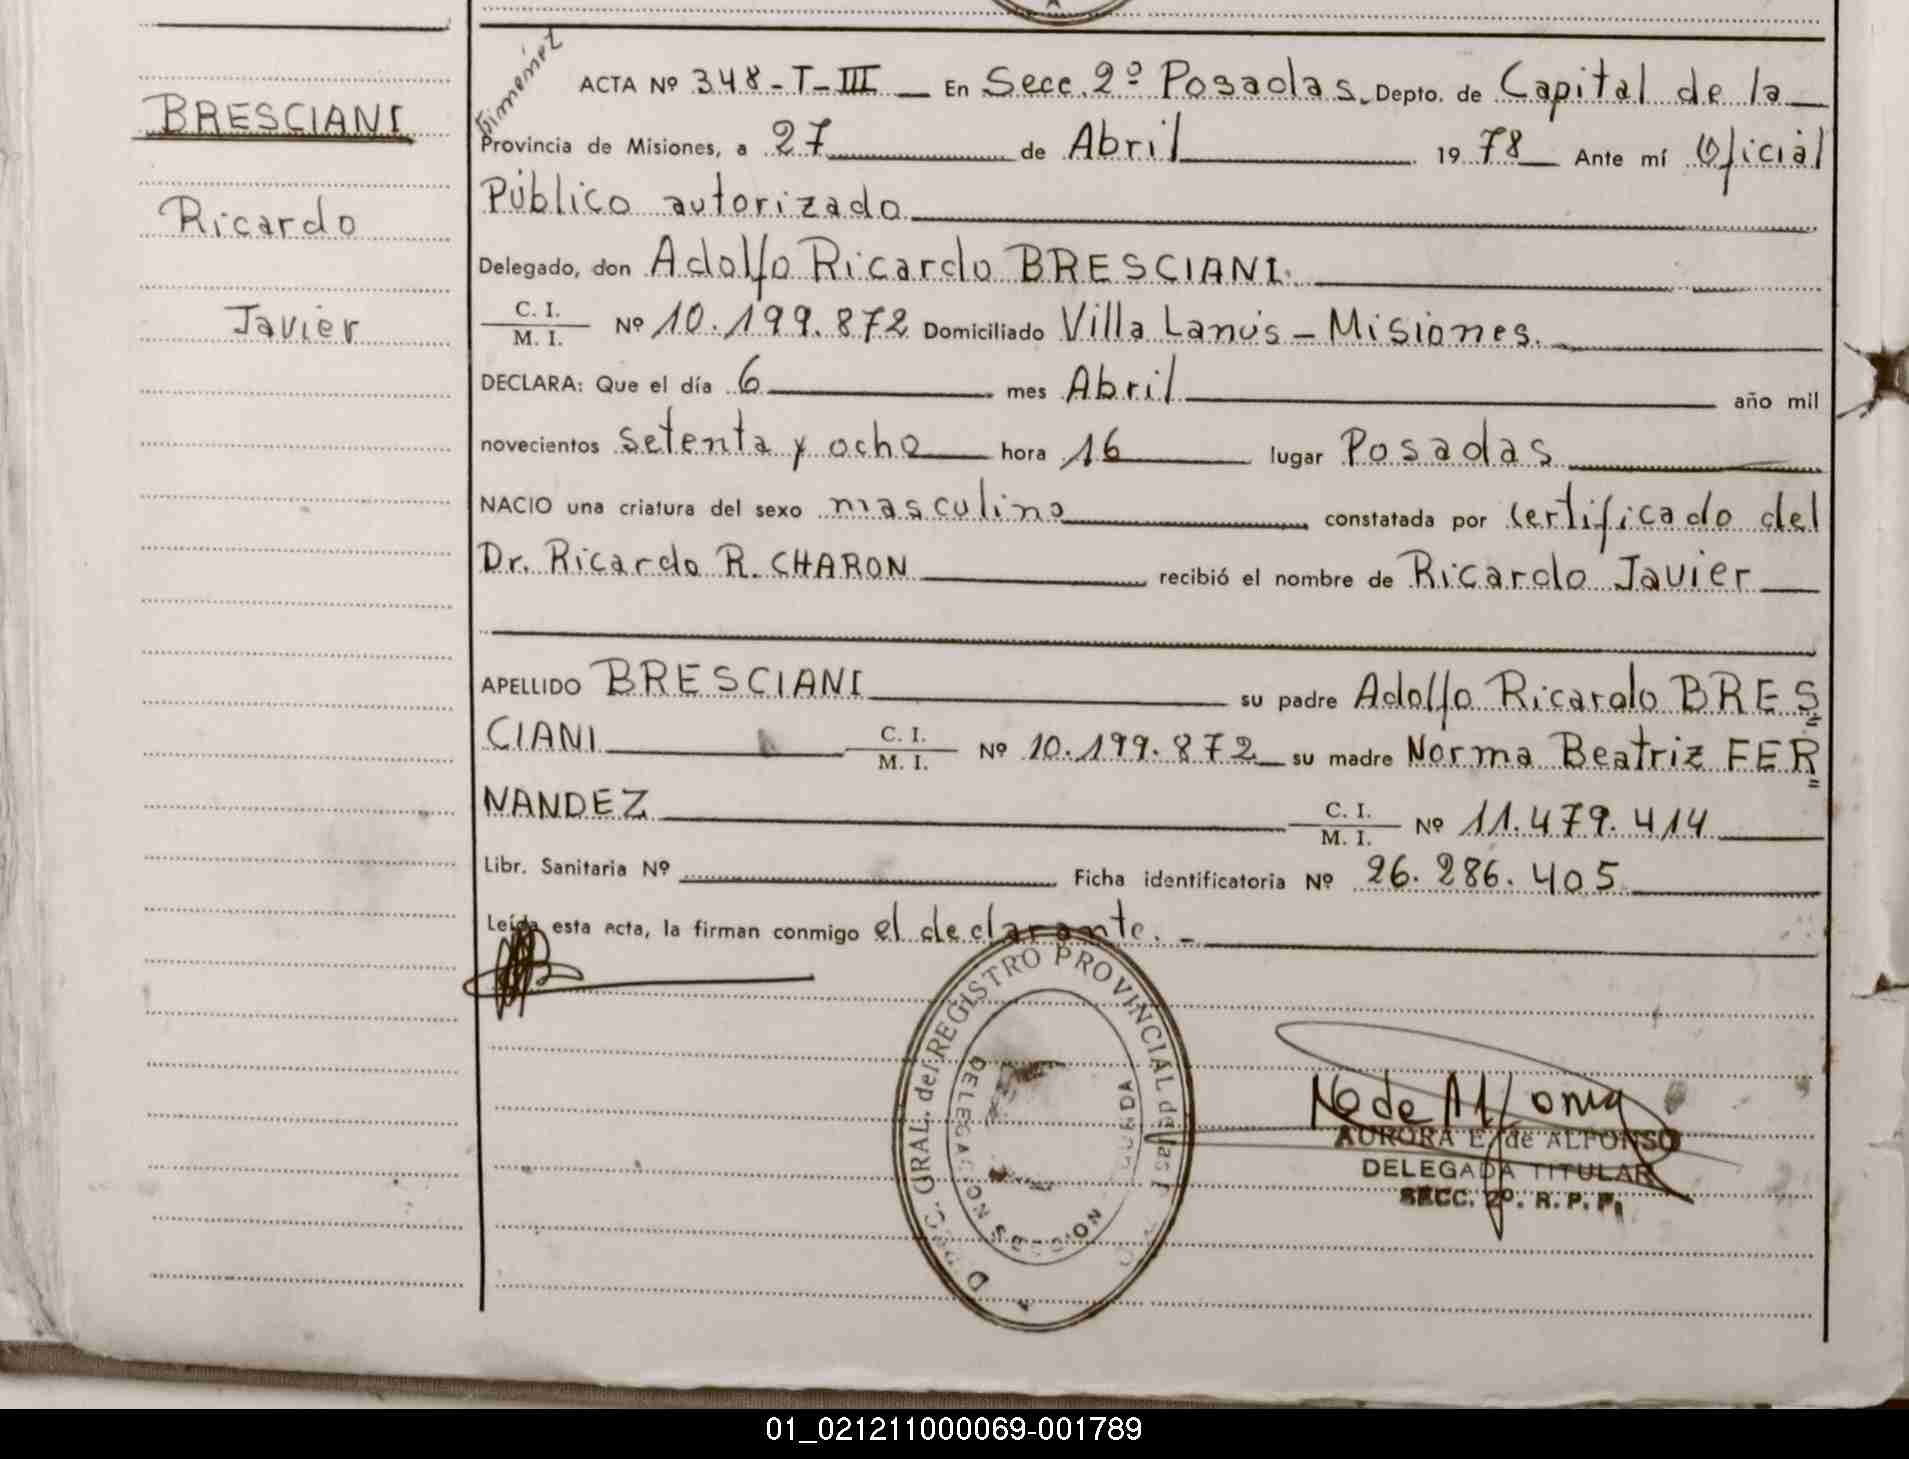 BRESCIANI
Ricardo
Javier
ACTA Nº 348-T-III En Secc. 2º Posadas. Depto. de Capital de la
Provincia de Misiones, a 27 de Abril 1978 Ante mí Oficial
Público autorizado
Delegado, don Adolfo Ricardo BRESCIANI.
C. I.
M. I. Nº 10.199.872 Domiciliado Villa Lanús - Misiones.
DECLARA: Que el día 6 mes Abril año mil
novecientos setenta y ocho hora 16 lugar Posadas
NACIO una criatura del sexo masculino constatada por certificado del
Dr. Ricardo R. CHARON recibió el nombre de Ricardo Javier
APELLIDO BRESCIANI su padre Adolfo Ricardo BRES
CIANI C. I.
M. I. Nº 10.199.872 su madre Norma Beatriz FER
NANDEZ C. I.
M. I. Nº 11.479.414
Libr. Sanitaria Nº Ficha identificatoria Nº 26.286.405
Leída esta acta, la firman conmigo el declarante. -
GRAL. del REGISTRO PROVINCIAL de las
AURORA E. de ALFONSO
DELEGADA TITULAR
SECC. 2º. R. P. P.
01_021211000069-001789